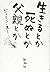 生きるとか
死ぬとか
父親とか
ジェーン・スー